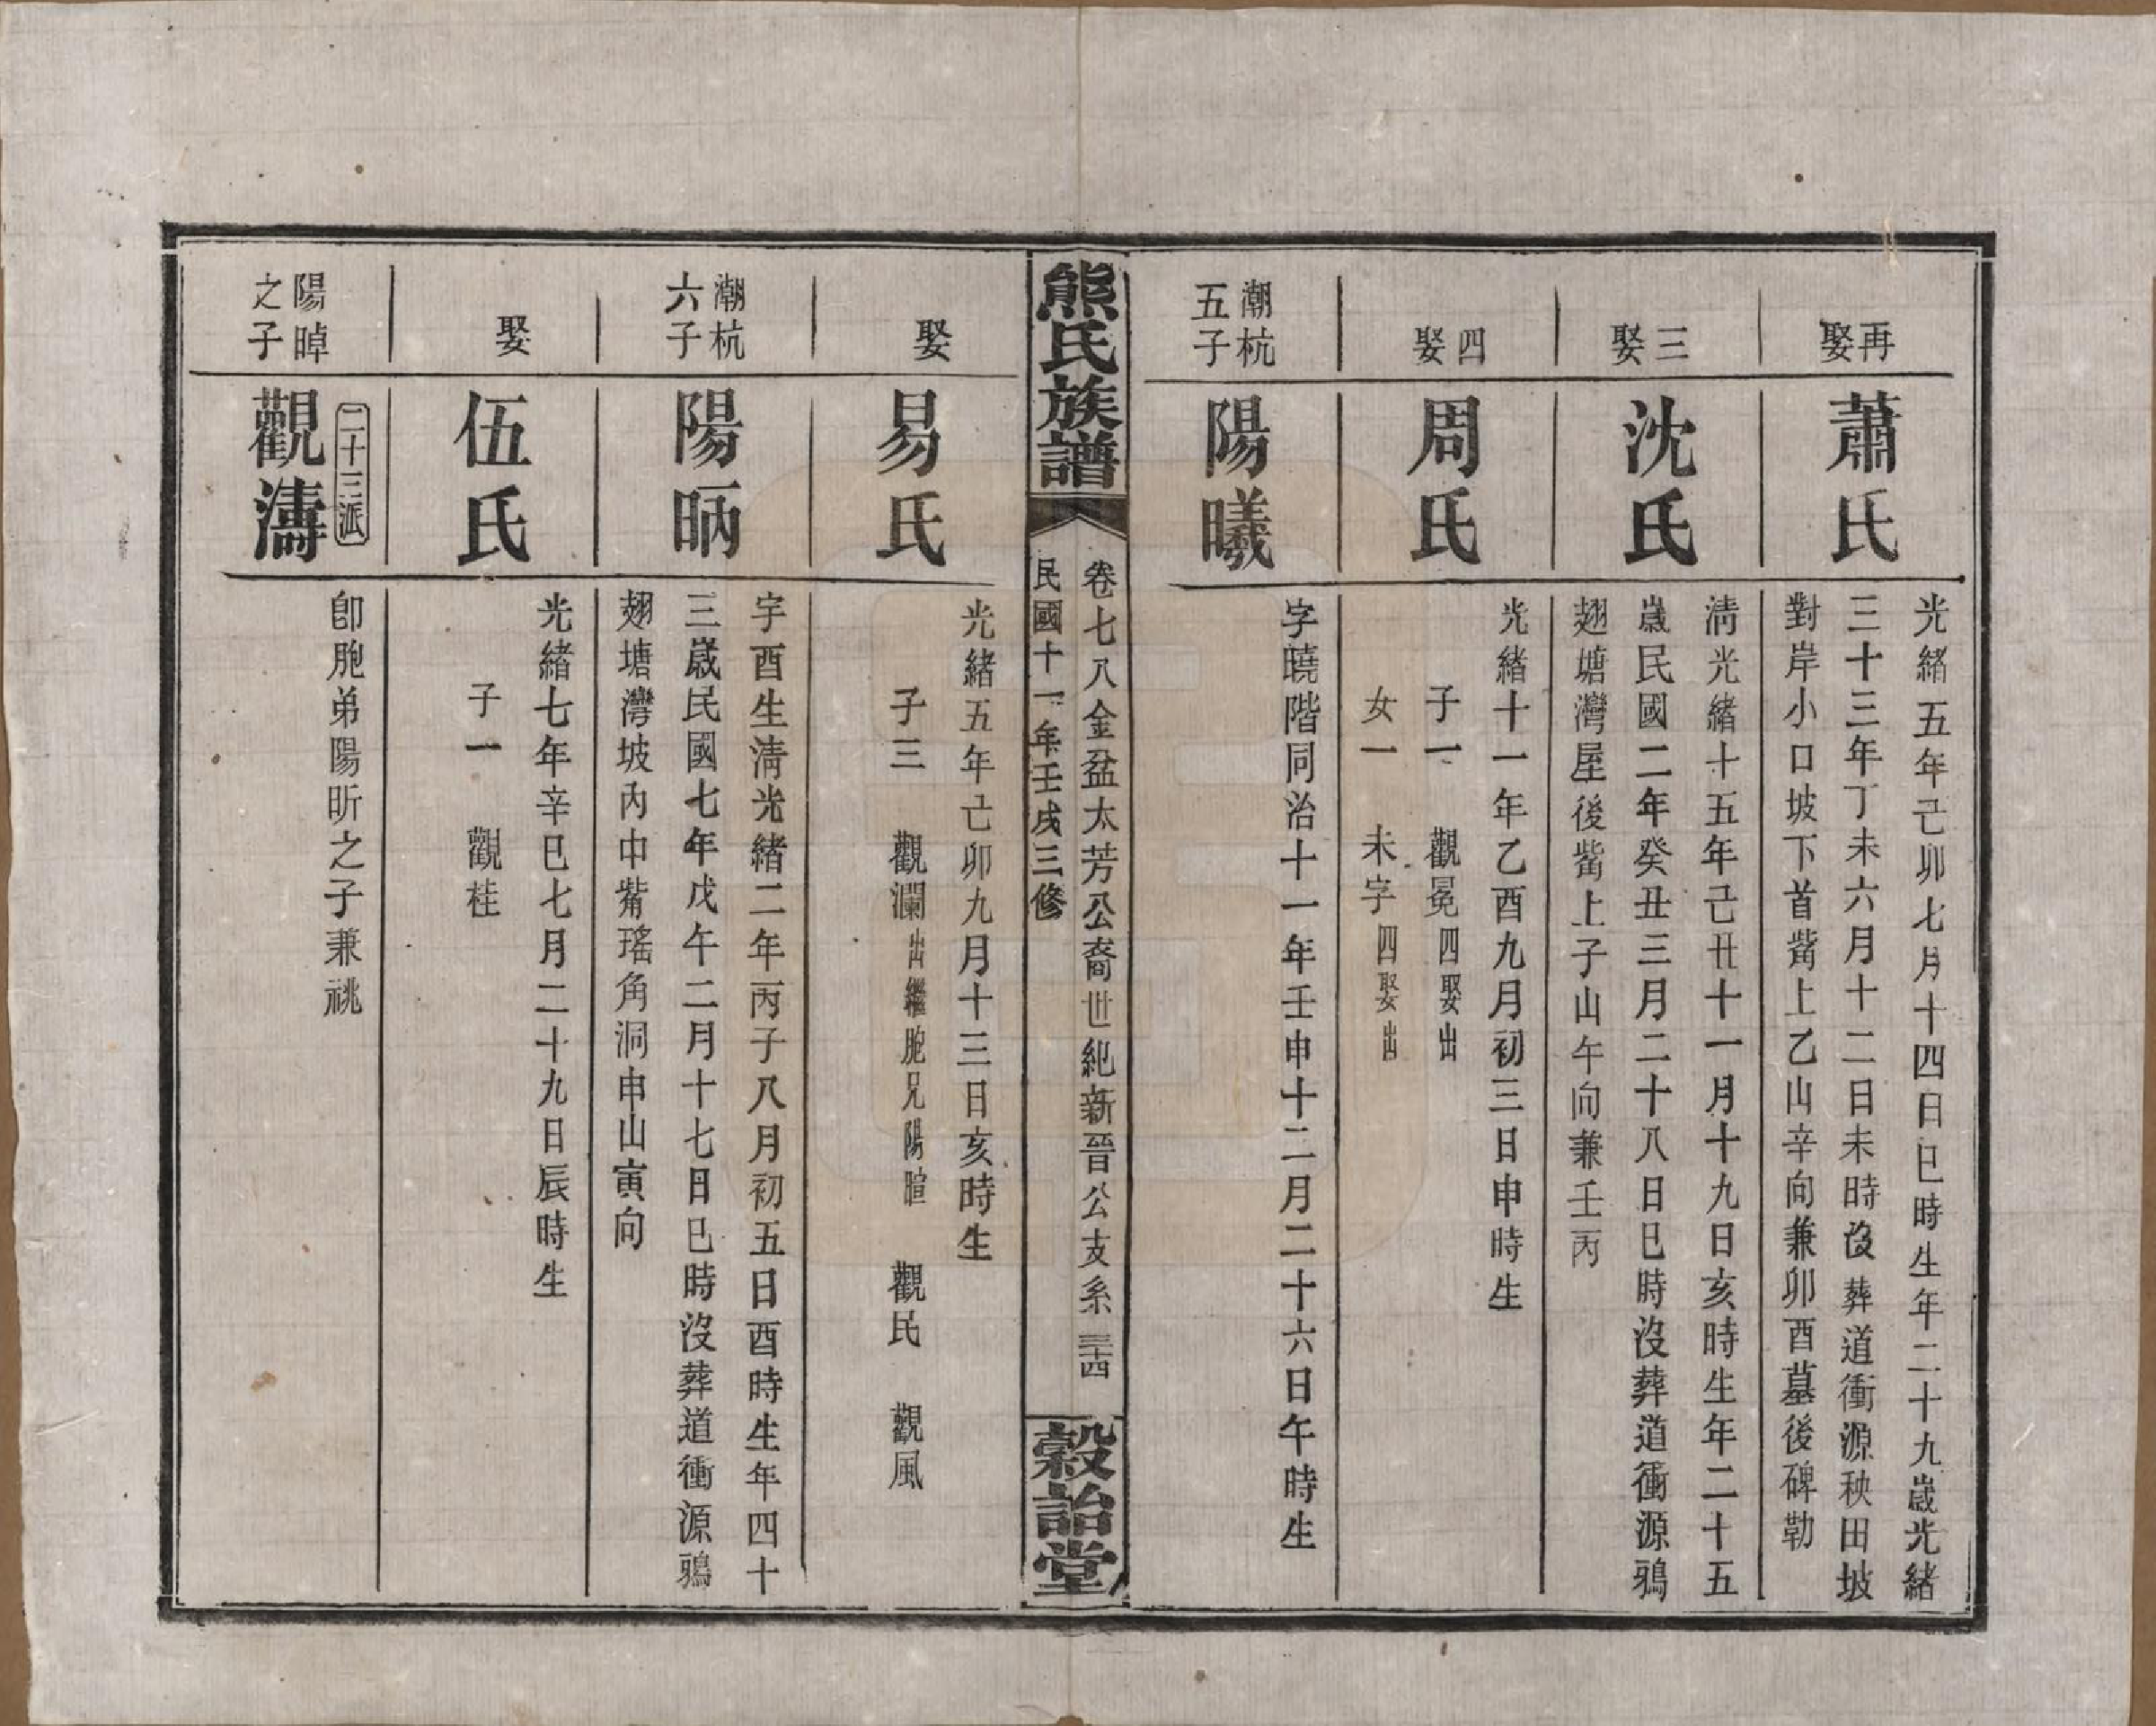 再娶
蕭氏
光緒五年己卯七月十四日巳時生年二十九歲光緒
三十三年丁未六月十二日未時沒葬道衝源秧田坡
對岸小口坡下首觜上乙山辛向兼卯酉墓後碑勒
三娶
沈氏
清光緒十五年己丑十一月十九日亥時生年二十五
歲民國二年癸丑三月二十八日巳時沒葬道衝源鴉
翅塘灣屋後觜上子山午向兼壬丙
四娶
周氏
光緒十一年乙酉九月初三日申時生
子一 觀冕四娶出
女一 未字四娶出
潮杭五子
陽曦
字曉階同治十一年壬申十二月二十六日午時生
熊氏族譜
卷七八金盆太芳公裔世紀新晉公支系 三十四
民國十一年壬戌三修
穀詒堂
娶
易氏
光緒五年己卯九月十三日亥時生
子三 觀瀾出繼胞兄陽暄 觀民 觀風
潮杭六子
陽昞
字酉生清光緒二年丙子八月初五日酉時生年四十
三歲民國七年戊午二月十七日巳時沒葬道衝源鴉
翅塘灣坡內中觜瑤角洞申山寅向
娶
伍氏
光緒七年辛巳七月二十九日辰時生
子一 觀桂
陽晫之子
二十三派
觀濤
卽胞弟陽昕之子兼祧